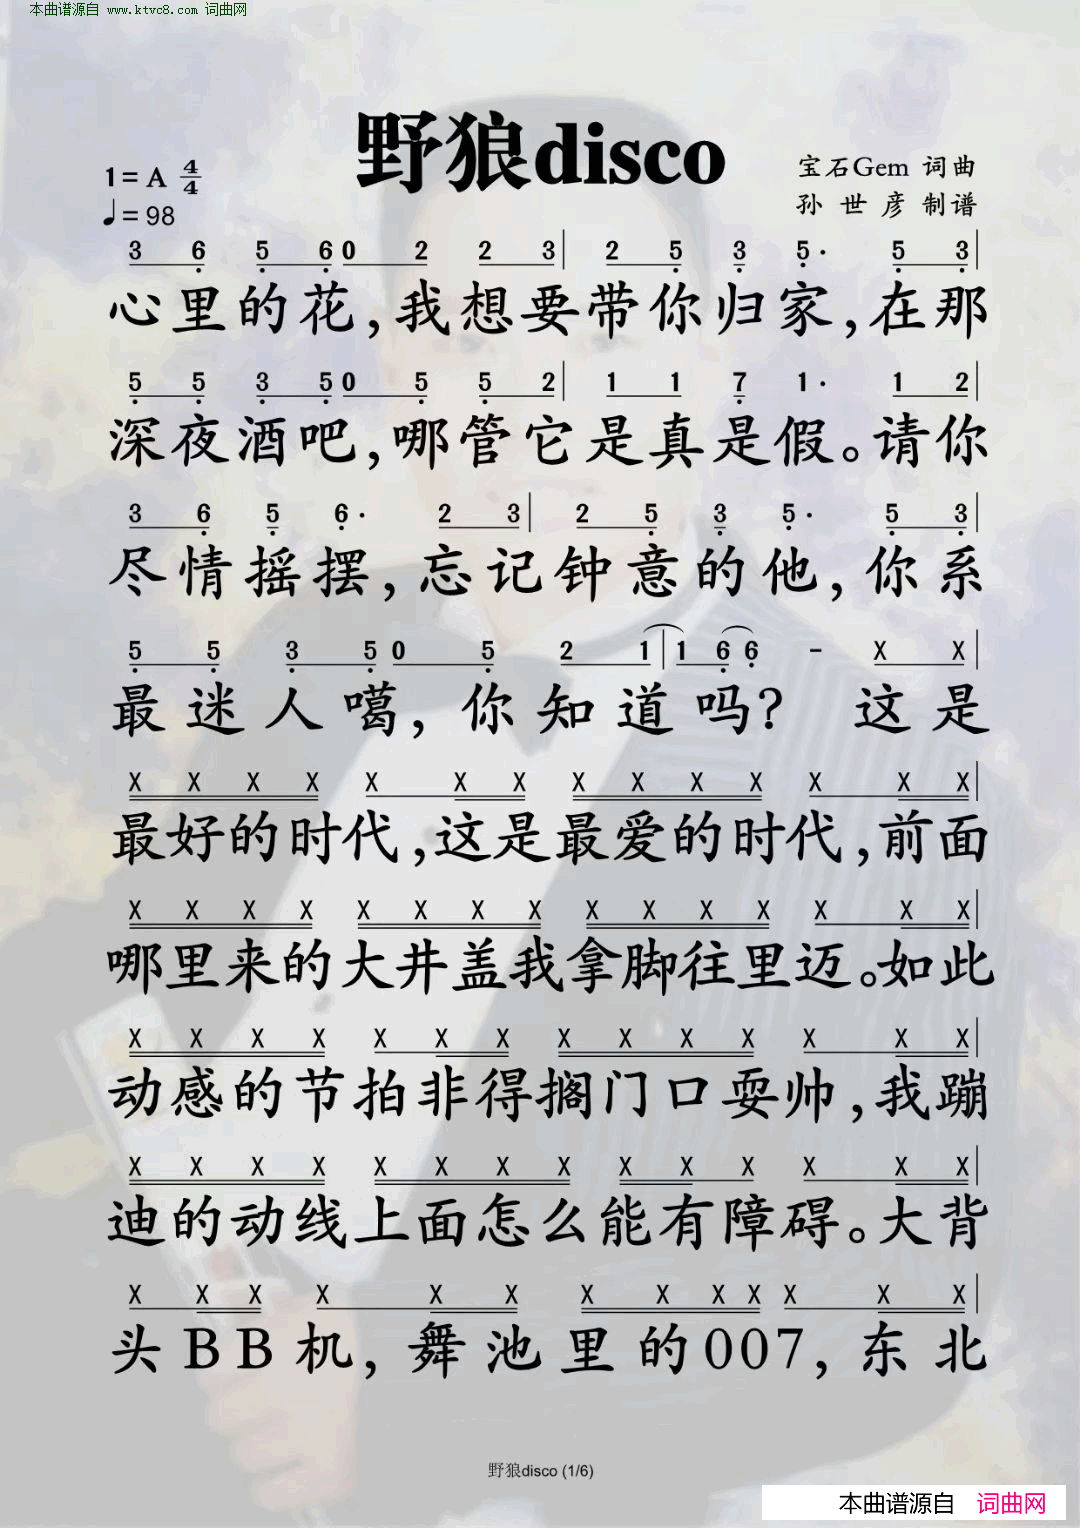 本曲谱源自 www.ktvc8.com 词曲网
野狼disco
1=A 4/4
♩=98
宝石Gem 词曲
孙世彦 制谱
3 6 5 6 0 2 2 3 | 2 5 3 5· 5 3 |
心里的花,我想要带你归家,在那
5 5 3 5 0 5 5 2 | 1 1 7 1· 1 2 |
深夜酒吧,哪管它是真是假。请你
3 6 5 6· 2 3 | 2 5 3 5· 5 3 |
尽情摇摆,忘记钟意的他,你系
5 5 3 5 0 5 2 1 | 1 6 6 - X X |
最迷人噶,你知道吗? 这是
X X X X X X X X X X X X X X |
最好的时代,这是最爱的时代,前面
X X X X X X X X X X X X X X X |
哪里来的大井盖我拿脚往里迈。如此
X X X X X X X X X X X X X X |
动感的节拍非得搁门口耍帅,我蹦
X X X X X X X X X X X X X X |
迪的动线上面怎么能有障碍。大背
X X X X X X X X X X X X X |
头BB机,舞池里的007,东北
野狼disco (1/6)
本曲谱源自 词曲网